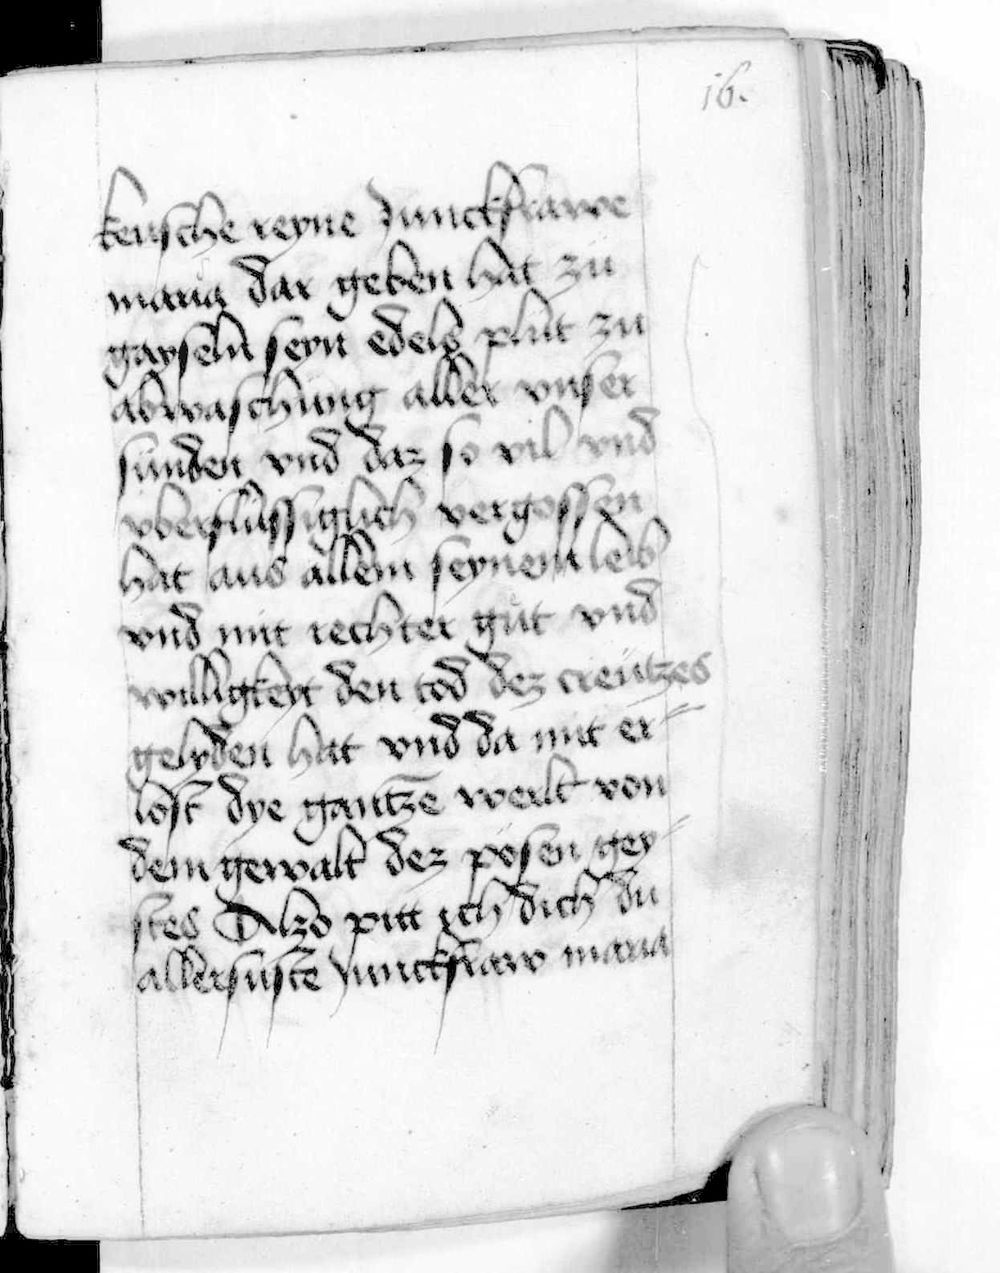 16.
keusche reyne Junckfrawe
maria dar geben hat zů
gayseln seyn edels plůt zu
abwaschung aller vnser
sünden vnd daz so vil vnd
vberflüssiglich vergossen
hat aus allem seynem leib
vnd mit rechter güt vnd
willigkeyt den tod dez creützes
gelyden hat vnd da mit er=
lost dye gantze werlt von
dem gewalt dez pösen gey=
stes Alzo pitt ich dich du
allersuste Junckfraw maria